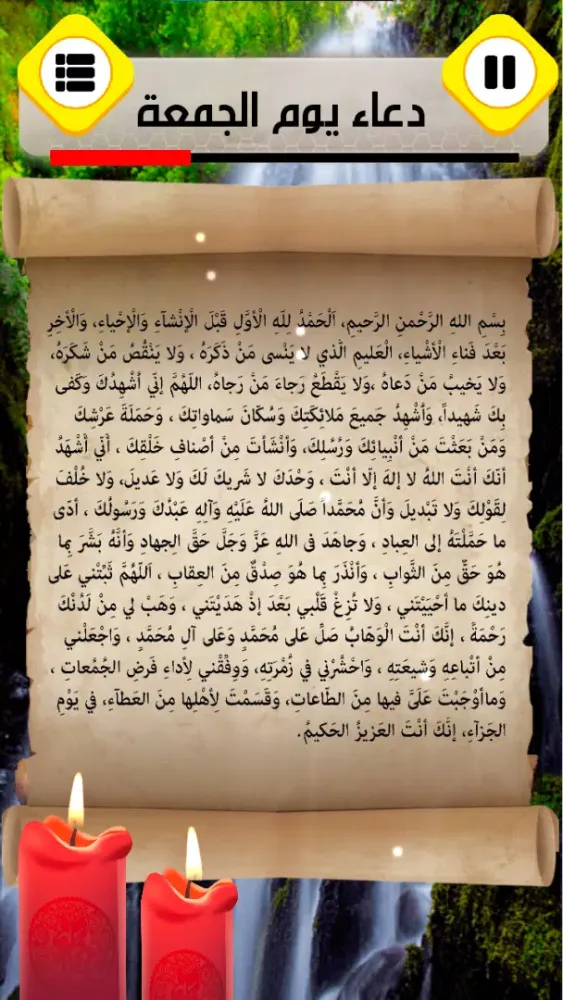 دعاء يوم الجمعة
بِسْمِ اللهِ الرَّحْمنِ الرَّحيمِ، اَلْحَمْدُ لِلّهِ الْأوَّلِ قَبْلَ الْإنْشآءِ وَالْإحْياءِ، وَالْآخِرِ
بَعْدَ فَناءِ الْأشْياءِ، الْعَليمِ الَّذي لا يَنْسى مَنْ ذَكَرَهُ ، وَلا يَنْقُصُ مَنْ شَكَرَهُ،
وَلا يَخيبُ مَنْ دَعاهُ ،وَلا يَقْطَعُ رَجاءَ مَنْ رَجاهُ، اللهُمَّ إنّي اُشْهِدُكَ وَكَفى
بِكَ شَهيداً، وَاُشْهِدُ جَميعَ مَلائكَتِكَ وَسُكّانَ سَماواتِكَ ، وَحَمَلَةَ عَرْشِكَ
وَمَنْ بَعَثْتَ مَنْ أنْبِيائِكَ وَرُسُلِكَ، وَأنْشَأتَ مِنْ أصْنافِ خَلْقِكَ ، أنّي أشْهَدُ
أنّكَ أنْتَ اللهُ لا إلهَ إلّا أنْتَ ، وَحْدَكَ لا شَريكَ لَكَ وَلا عَديلَ، وَلا خُلْفَ
لِقَوْلِكَ وَلا تَبْديلَ وَأنَّ مُحَمَّداً صَلَى اللهُ عَلَيْهِ وَآلِهِ عَبْدُكَ وَرَسُولُكَ ، أدّى
ما حَمَّلْتَهُ إلى العِبادِ ، وَجاهَدَ فى اللهِ عَزَّ وَجَلَّ حَقَّ الجِهادِ وَأنَّهُ بَشَّرَ بِما
هُوَ حَقٌّ مِنَ الثَّوابِ ، وَأنْذَرَ بِما هُوَ صِدْقٌ مِنَ العِقابِ ، اَللهُمَّ ثَبِّتْني عَلى
دينِكَ ما أحْيَيْتَني ، وَلا تُزِغْ قَلْبي بَعْدَ إذْ هَدَيْتَني ، وَهَبْ لي مِنْ لَدُنْكَ
رَحْمَةً ، إنَّكَ أنْتَ الْوَهّابُ صَلِّ عَلى مُحَمَّدٍ وَعَلى آلِ مُحَمَّدٍ ، وَاجْعَلْني
مِنْ أتْباعِهِ وَشيعَتِهِ ، وَاحْشُرْني في زُمْرَتِهِ، وَوِفِّقْني لِأداءِ فَرضِ الجُمُعاتِ ،
وَماأوْجَبْتَ عَلَىَّ فيها مِنَ الطّاعاتِ، وَقَسَمْتَ لِأهْلِها مِنَ العَطآءِ، في يَوْمِ
الجَزآءِ، إنَّكَ أنْتَ العَزيزُ الحَكيمُ.